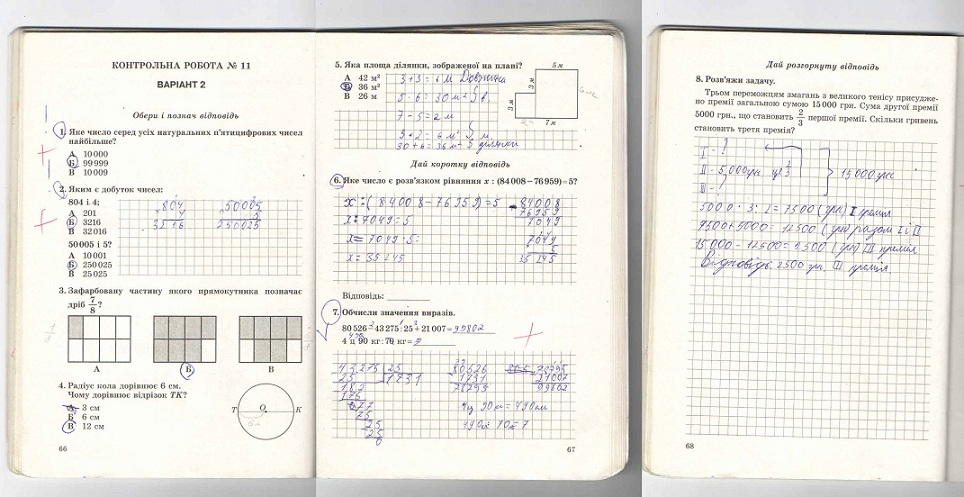 КОНТРОЛЬНА РОБОТА № 11
ВАРІАНТ 2
Обери і познач відповідь
1. Яке число серед усіх натуральних п'ятицифрових чисел
найбільше?
А 10 000
Б 99 999
В 10 009
2. Яким є добуток чисел:
804 і 4;
А 201
Б 3216
В 32 016
804
4
3216
50005
5
250025
50 005 і 5?
А 10 001
Б 250 025
В 25 025
3. Зафарбовану частину якого прямокутника позначає
дріб 7/8?
А Б В
4. Радіус кола дорівнює 6 см.
Чому дорівнює відрізок ТК?
А 3 см
Б 6 см
В 12 см
Т О К
66
5. Яка площа ділянки, зображеної на плані?
А 42 м²
Б 36 м²
В 26 м
5 м
3 м
3 м
3+3=6 м Довжина
5·6=30 м² S
7-5=2 м
3·2=6 м² S
30+6=36 м² S ділянки
Дай коротку відповідь
6. Яке число є розв'язком рівняння x : (84 008 − 76 959) = 5?
x:(84008-76959)=5
x:7049=5
x=7049·5
x=35245
84008
76959
7049
7049
5
35245
Відповідь:
7. Обчисли значення виразів.
80 526 − 43 275 : 25 + 21 007 = 99802
4 ц 90 кг : 70 кг = 7
43275 25
25 1731
182
175
77
75
25
25
0
80526
1731
78795
78795
21007
99802
4ц 90кг=490кг
490:70=7
67
Дай розгорнуту відповідь
8. Розв'яжи задачу.
Трьом переможцям змагань з великого тенісу присудже-
но премії загальною сумою 15 000 грн. Сума другої премії
5000 грн., що становить 2/3 першої премії. Скільки гривень
становить третя премія?
I - ?
II - 5000грн це 2/3
III - ?
15000 грн
5000·3:2=7500 (грн) I премія
7500+5000=12500 (грн) разом I і II
15000-12500=2500 (грн) III премія
Відповідь: 2500 грн. III премія
68